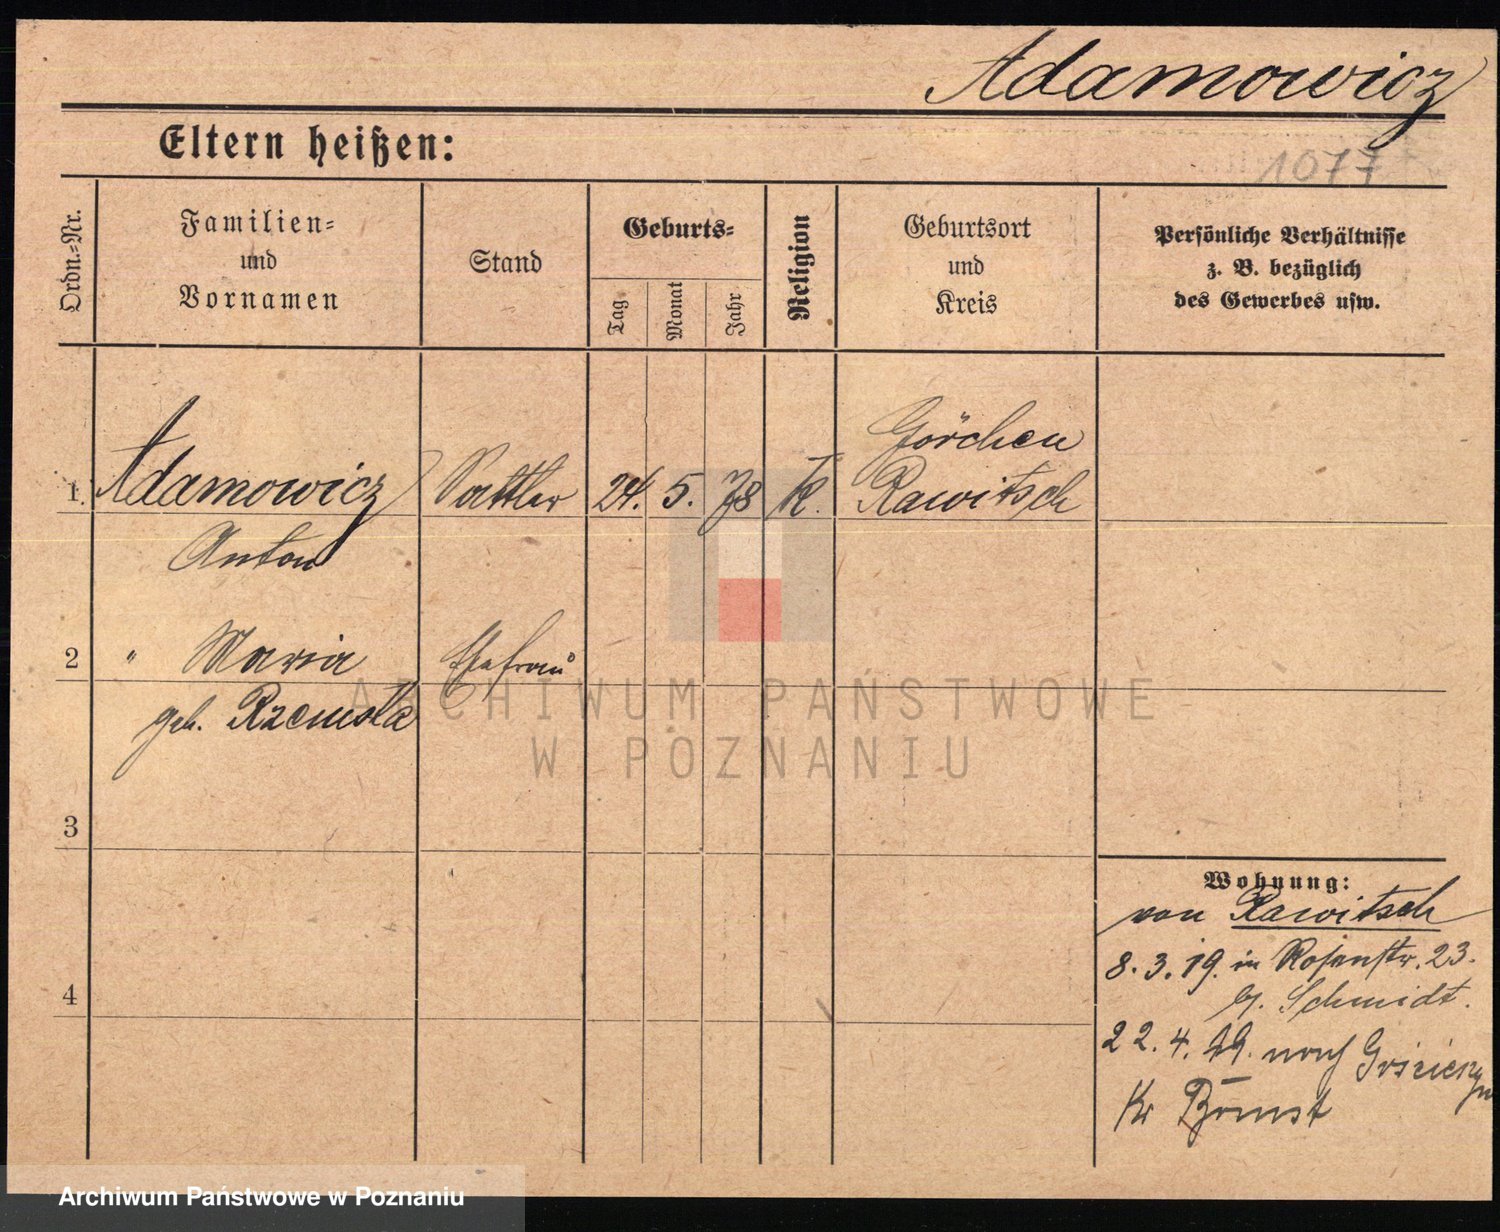 Adamowicz
1077
Eltern heißen:
Ordn.=Nr.
Familien=
und
Vornamen
Stand
Geburts=
Tag
Monat
Jahr
Religion
Geburtsort
und
Kreis
Persönliche Verhältnisse
z. B. bezüglich
des Gewerbes usw.
1. Adamowicz Sattler 24. 5. 78 K. Görchen
Rawitsch
Anton
2 " Maria Ehefrau
geb.
3
4
Wohnung:
von Rawitsch
8. 3. 19. in Rosenstr. 23.
b. Schmidt.
22. 4. 19. nach
Kr Bomst
ARCHIWUM PAŃSTWOWE
W POZNANIU
Archiwum Państwowe w Poznaniu